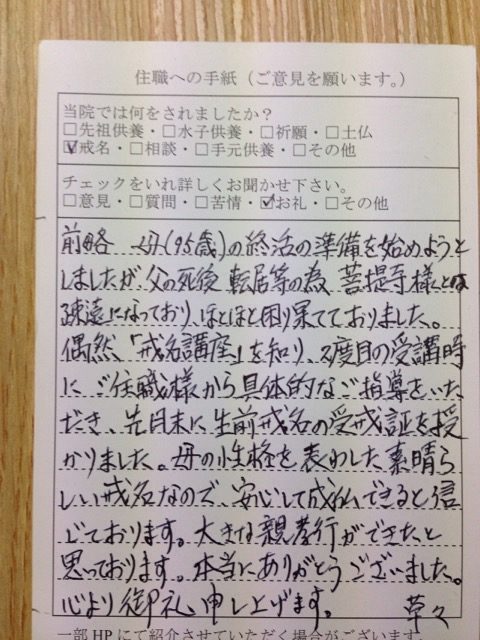 住職への手紙(ご意見を願います。)
当院では何をされましたか?
□先祖供養・□水子供養・□祈願・□土仏
☑戒名・□相談・□手元供養・□その他
チェックをいれ詳しくお聞かせ下さい。
□意見・□質問・□苦情・☑お礼・□その他
前略 母(95歳)の終活の準備を始めようと
しましたが父の死後転居等の為、菩提寺様とは
疎遠になっており、ほとほと困り果てておりました。
偶然、「戒名講座」を知り、2度目の受講時
にご住職様から具体的なご指導をいた
だき、先月末に生前戒名の受戒証を授
かりました。母の性格を表わした素晴ら
しい戒名なので、安心して成仏できると信
じております。大きな親孝行ができたと
思っております。本当にありがとうございました。
心より御礼申し上げます。 草々
一部HPにて紹介させていただく場合がございます